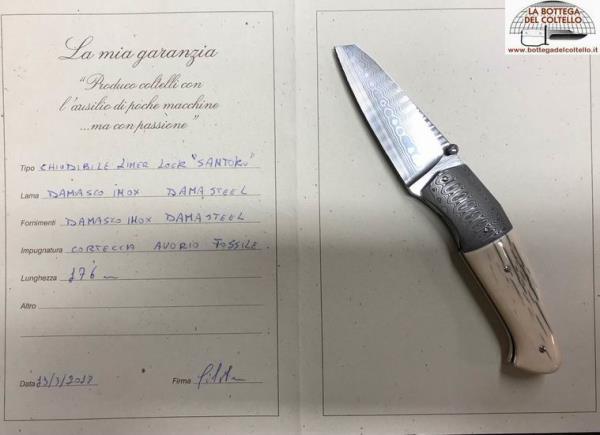 LA BOTTEGA
DEL COLTELLO
www.bottegadelcoltello.it
La mia garanzia
"Produco coltelli con
l'ausilio di poche macchine
...ma con passione"
Tipo CHIUDIBILE LINER LOCK "SANTOKU"
Lama DAMASCO INOX DAMASTEEL
Fornimenti DAMASCO INOX DAMASTEEL
Impugnatura CORTECCIA AVORIO FOSSILE.
Lunghezza 176
Altro
Data
Firma